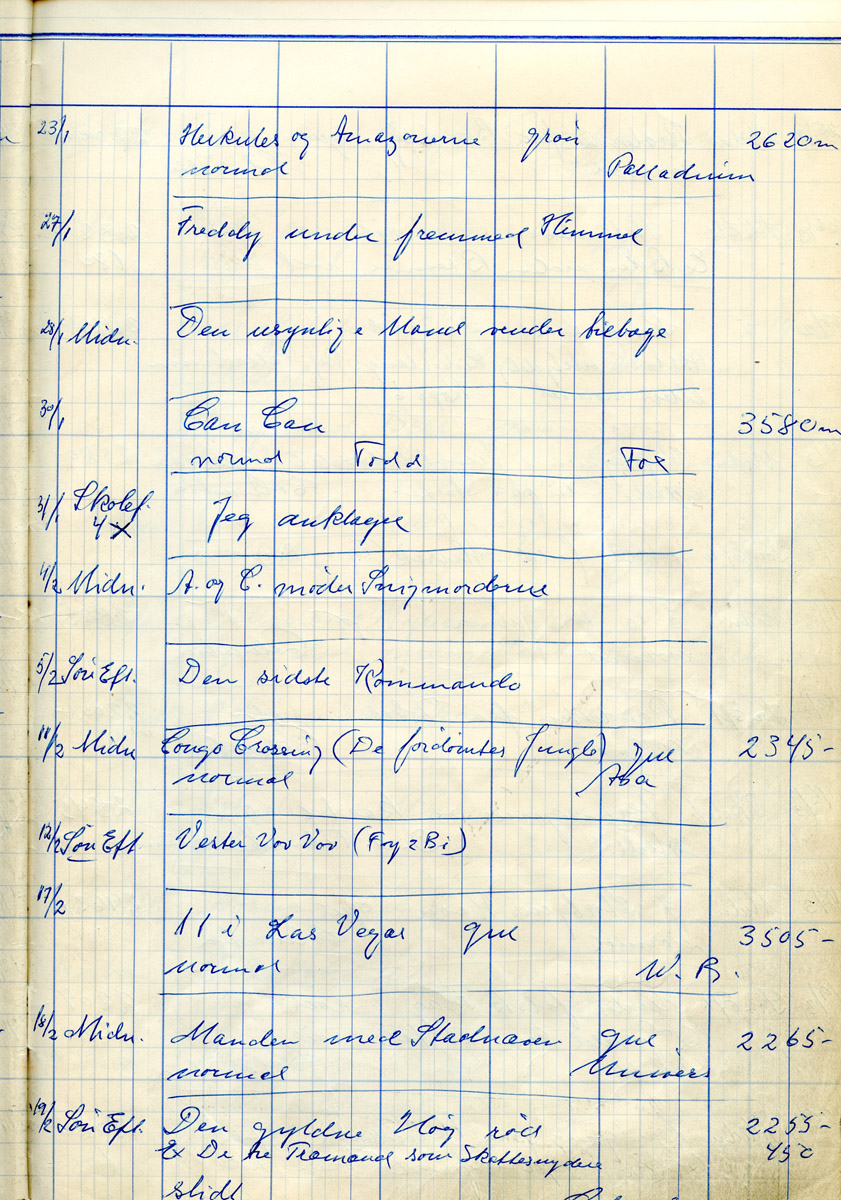 23/1 Herkules og Amazonerne grøn 2620m
normal Palladium
27/1 Freddy under fremmed Himmel
28/1 Midn. Den usynlige Mand vender tilbage
30/1 Can Can 3580m
normal Todd Fox
31/1 Skolef.
4 x Jeg anklager
4/2 Midn. A. og C. møder Snigmorderne
5/2 Søn Eft. Den sidste Kommando
11/2 Midn Congo Crossing (De fordømtes Jungle) gul 2345-
normal
12/2 Søn Eft Vester Vov Vov (Fy & Bi)
17/2
11 i Las Vegas gul 3505-
normal W. B.
18/2 Midn. Manden med Staalnæven gul 2265-
normal Univers
19/2 Søn Eft. Den gyldne Høg rød 2255-
De tre som Skattesnydere 450
slidt